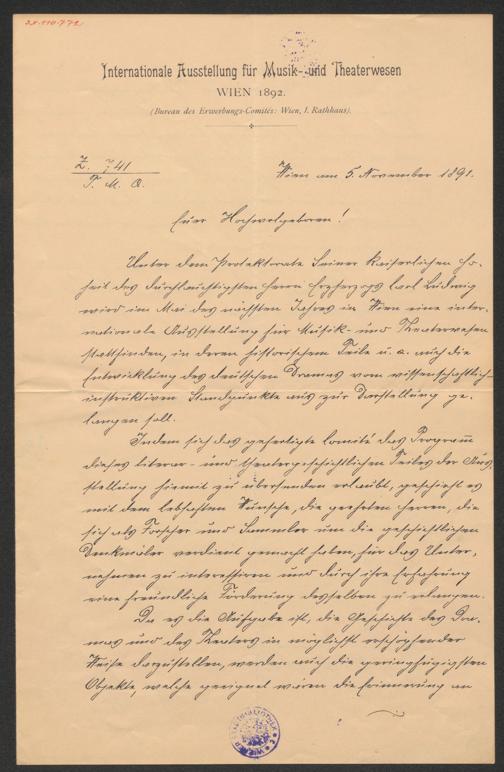 Internationale Ausstellung für Musik- und Theaterwesen
WIEN 1892.
(Bureau des Erwerbungs-Comités: Wien, I. Rathhaus).
Z. 741
T. M. A.
Wien am 5. November 1891.
Euer Hochwolgeboren!
Unter dem Protektorate Seiner Kaiserlichen Ho-
heit des durchlauchtigsten Herrn Erzherzogs Carl Ludwig
wird im Mai des nächsten Jahres in Wien eine inter-
nationale Ausstellung für Musik- und Theaterwesen
stattfinden, in deren historischem Teile u. a. auch die
Entwicklung des deutschen Dramas vom wissenschaftlich-
instruktiven Standpunkte aus zur Darstellung ge-
langen soll.
Indem sich das gefertigte Comité das Programm
dieses literar- und theatergeschichtlichen Teiles der Aus-
stellung hiemit zu übersenden erlaubt, geschieht es
mit dem lebhaften Wunsche, die geehrten Herren, die
sich als Forscher und Sammler um die geschichtlichen
Denkmäler verdient gemacht haben, für das Unter-
nehmen zu interessiren und durch ihre Erfahrung
eine freundliche Förderung desselben zu erlangen.
Da es die Aufgabe ist, die Geschichte des Dra-
mas und des Theaters in möglichst erschöpfender
Weise darzustellen, werden auch die geringfügigsten
Objekte, welche geeignet wären die Erinnerung an